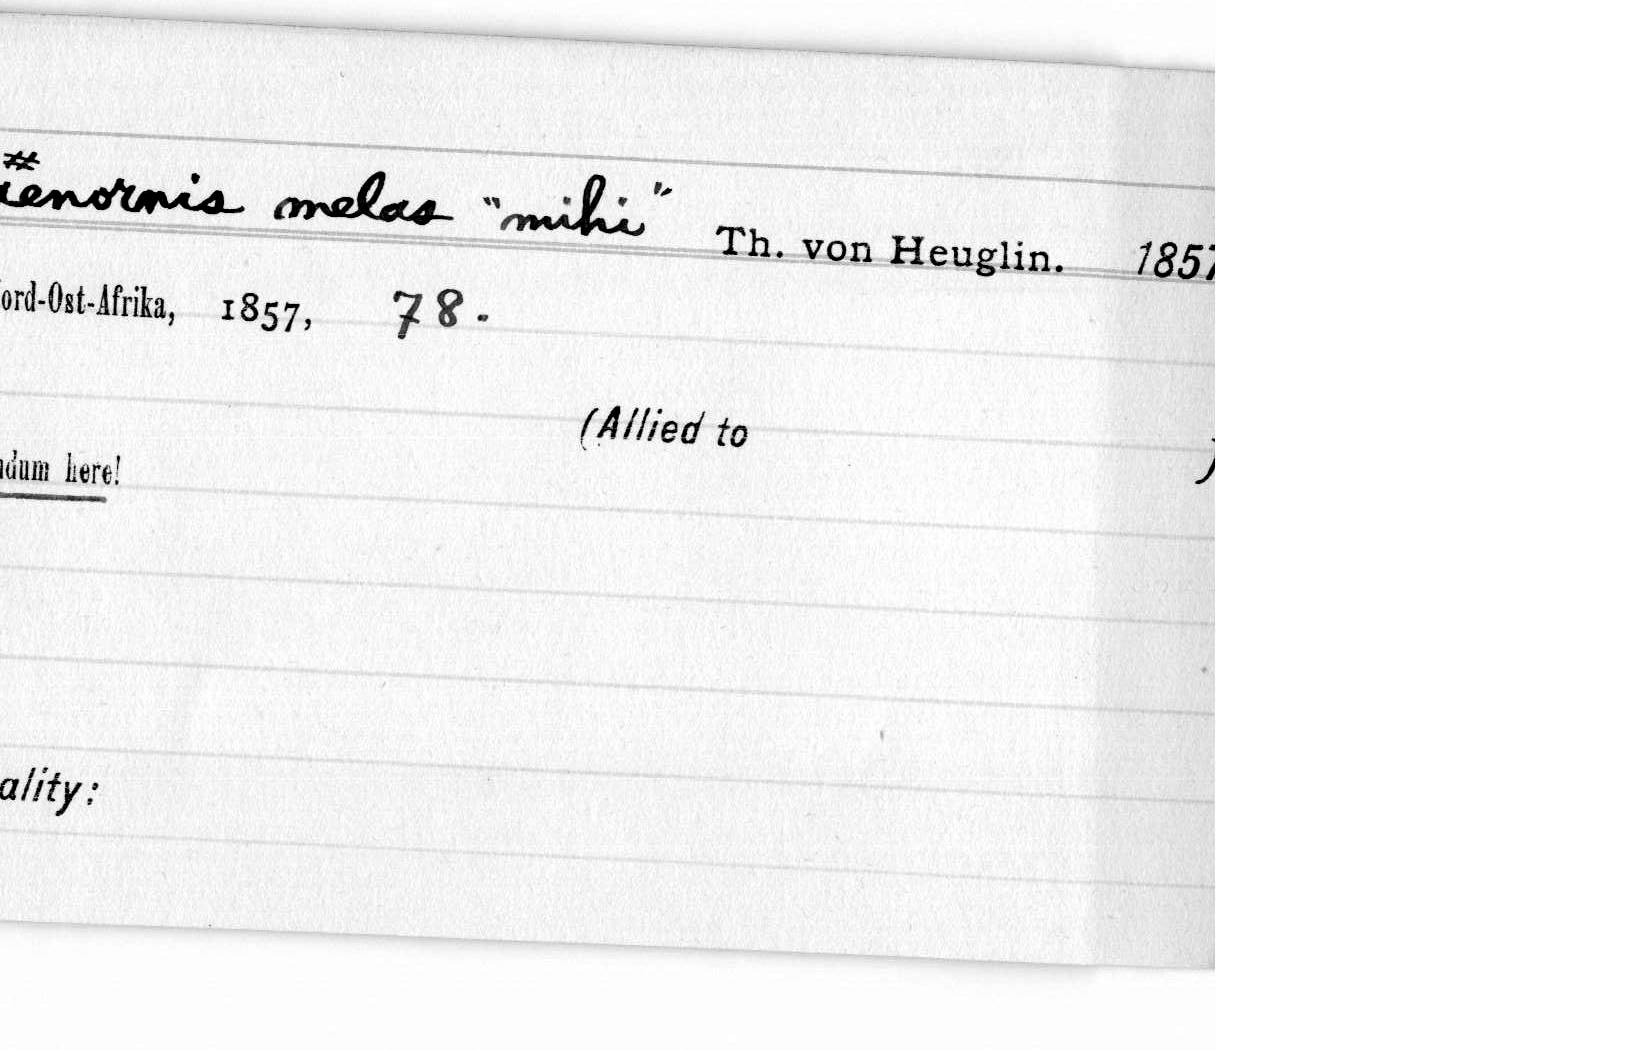 #
enornis melas "mihi" Th. von Heuglin. 1857
ord-Ost-Afrika, 1857, 78.
(Allied to )
dum here!
ality: